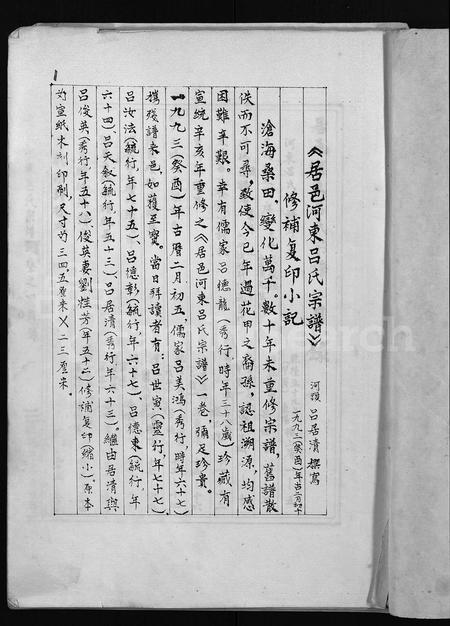 《居邑河東呂氏宗譜》
修補复印小記
河頭 呂居清 撰寫
一九九三(癸酉)年古二月初十
滄海桑田,變化萬千。數十年未重修宗譜,舊譜散
佚而不可尋,致使今已年過花甲之裔孫,認祖溯源,均感
困難辛艱。幸有儒家呂德龍(秀行,時年三十八歲)珍藏有
宣統辛亥年重修之《居邑河東呂氏宗譜》一卷,彌足珍貴。
一九九三(癸酉)年古曆二月初五,儒家呂美鴻(秀行,時年六十七)
攜殘譜來邑,如獲至寶。當日拜讀者有:呂世寅(靈行,年七十七)
呂汝法(毓行,年七十五)、呂德彰(毓行,年六十七)、呂德東(毓行,年
六十四)、呂天叙(毓行,年五十三)、呂居清(秀行,年六十三)。繼由居清與
呂俊英(秀行,年五十八)、俊英妻劉桂芳(年五十二)修補复印(縮小)。原本
為宣紙木刻印制,尺寸為三四.五厘米×二三厘米
1